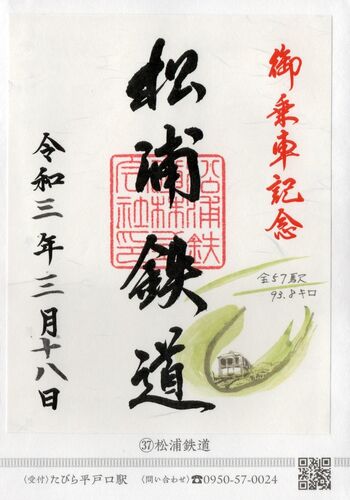 御乗車記念
松浦鉄道
令和三年三月十八日
全57駅
93.8キロ
㊲松浦鉄道
〈受付〉たびら平戸口駅 〈問い合わせ〉☎0950-57-0024